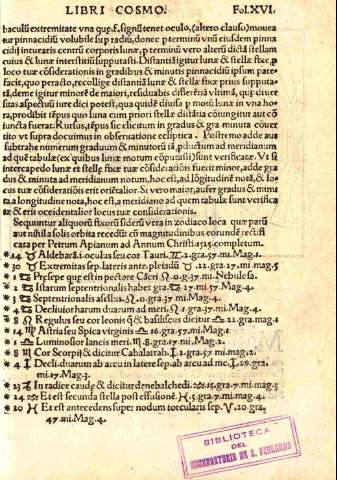 LIBRI COSMO. Fo.XVI.
baculũ extremitate vna que.f. signũ tenet oculo, (altero clauso) mouea
tur pinnacidiũ volubile sup radiũ, donec p terminũ vnũ eiusdem pinna
cidij intuearis centrũ corporis lunæ, p terminũ vero alterũ dictã stellam
cuius & lunæ interstitiũ supputasti. Distãtia igitur lunæ & stellæ fixæ, p
loco tuæ cõsiderationis in gradibus & minutis pinnacidiũ ipsum pate
facit, quo peracto, recollige distantiã lunæ & stellæ fixæ prius supputa
tã, deme igitur minorẽ de maiori, residuabis differẽtiã vltimã, quæ diuer
sitas aspectuũ iure dici potest, qua
vnctis fuerat. Rursus, tẽpus sic elicitum in gradus & gra minuta cõuer
tito vt supra documus in obseruatione ecliptica. Postremo adde aut
subtrahe numerum graduum & minutorũ
ad quẽ tabulæ (ex quibus lunæ motum cõputasti) sunt verificatæ. Vt si
intercapedo lunæ et stellæ fixæ tuæ cõsiderationis fuerit minor, adde gra
dus & minuta ad meridianum notum, hoc est, ad lõgitudinẽ notã, & lo
cus tuæ cõsiderationis erit oriẽtalior. Si vero maior, aufer gradus & minu
ta a longitudine nota, hoc est, a meridiano ad quem tabulæ sunt verifica
tæ & erit occidentalior locus tuæ considerationis.
Sequuntur aliquorũ fixorũ siderũ vera in zodiaco loca quæ parũ
aut nihil a solis orbita recedũt cũ magnitudinibus eorundẽ rectifi
cata per Petrum Apianum ad Annum Christi.1525.completum.
*14 ♉ Aldebarã.i.oculus seu cor Tauri. ♊.2.gra.57.mi.Mag.1.
*30 ♉ Extremitas sep.lateris ante.pleiadũ ♉.21.gra.27.mi.mag.5
*1 ♋ Presepe que est in pectore Cãcri ♌.0.g.37.mi.Nebulosa.
*2 ♋ Istarum septentrionalis habet gra.♋.27.mi.57.Mag.4.
*3 ♋ Septentrionalis asellus.♌.0.gra.37.mi.Mag.4.
*4 ♋ Decliuior harum duarum ad meri.♌.1.gra.37.mi.Mag.4.
*8 ♌ Regulus seu cor leonis q̃ & basiliscus dicitur ♌.22.gra.mag.1
*14 ♍ Astria seu Spica virginis ♎.16.gra.57.mi.Mag.1.
*1 ♎ Luminosior lancis meri.♏.8.gra.17.mi.Mag.2.
*8 ♏ Cor Scorpij & dicitur Cabalatrab.♐.2.gra.57.mi.mag.2.
*4 ♐ Decli.duarum ab arcu in latere sep.ab arcu ad mc.♐.29.gra.
mi.17.Mag.3.
*23 ♑ In radice caudæ & dicitur denebalchedi.♒.15.gra.7.mi.mag.3
*24 ♒ Et est secunda stella post effusionẽ.♓.5.gra.7.mi.mag.4.
*20 ♓ Et est antecedens super nodum torcularis sep.♈.20.gra
47.mi.Mag.4.
BIBLIOTECA
DEL
OBSERVATORIO DE S. FERNANDO